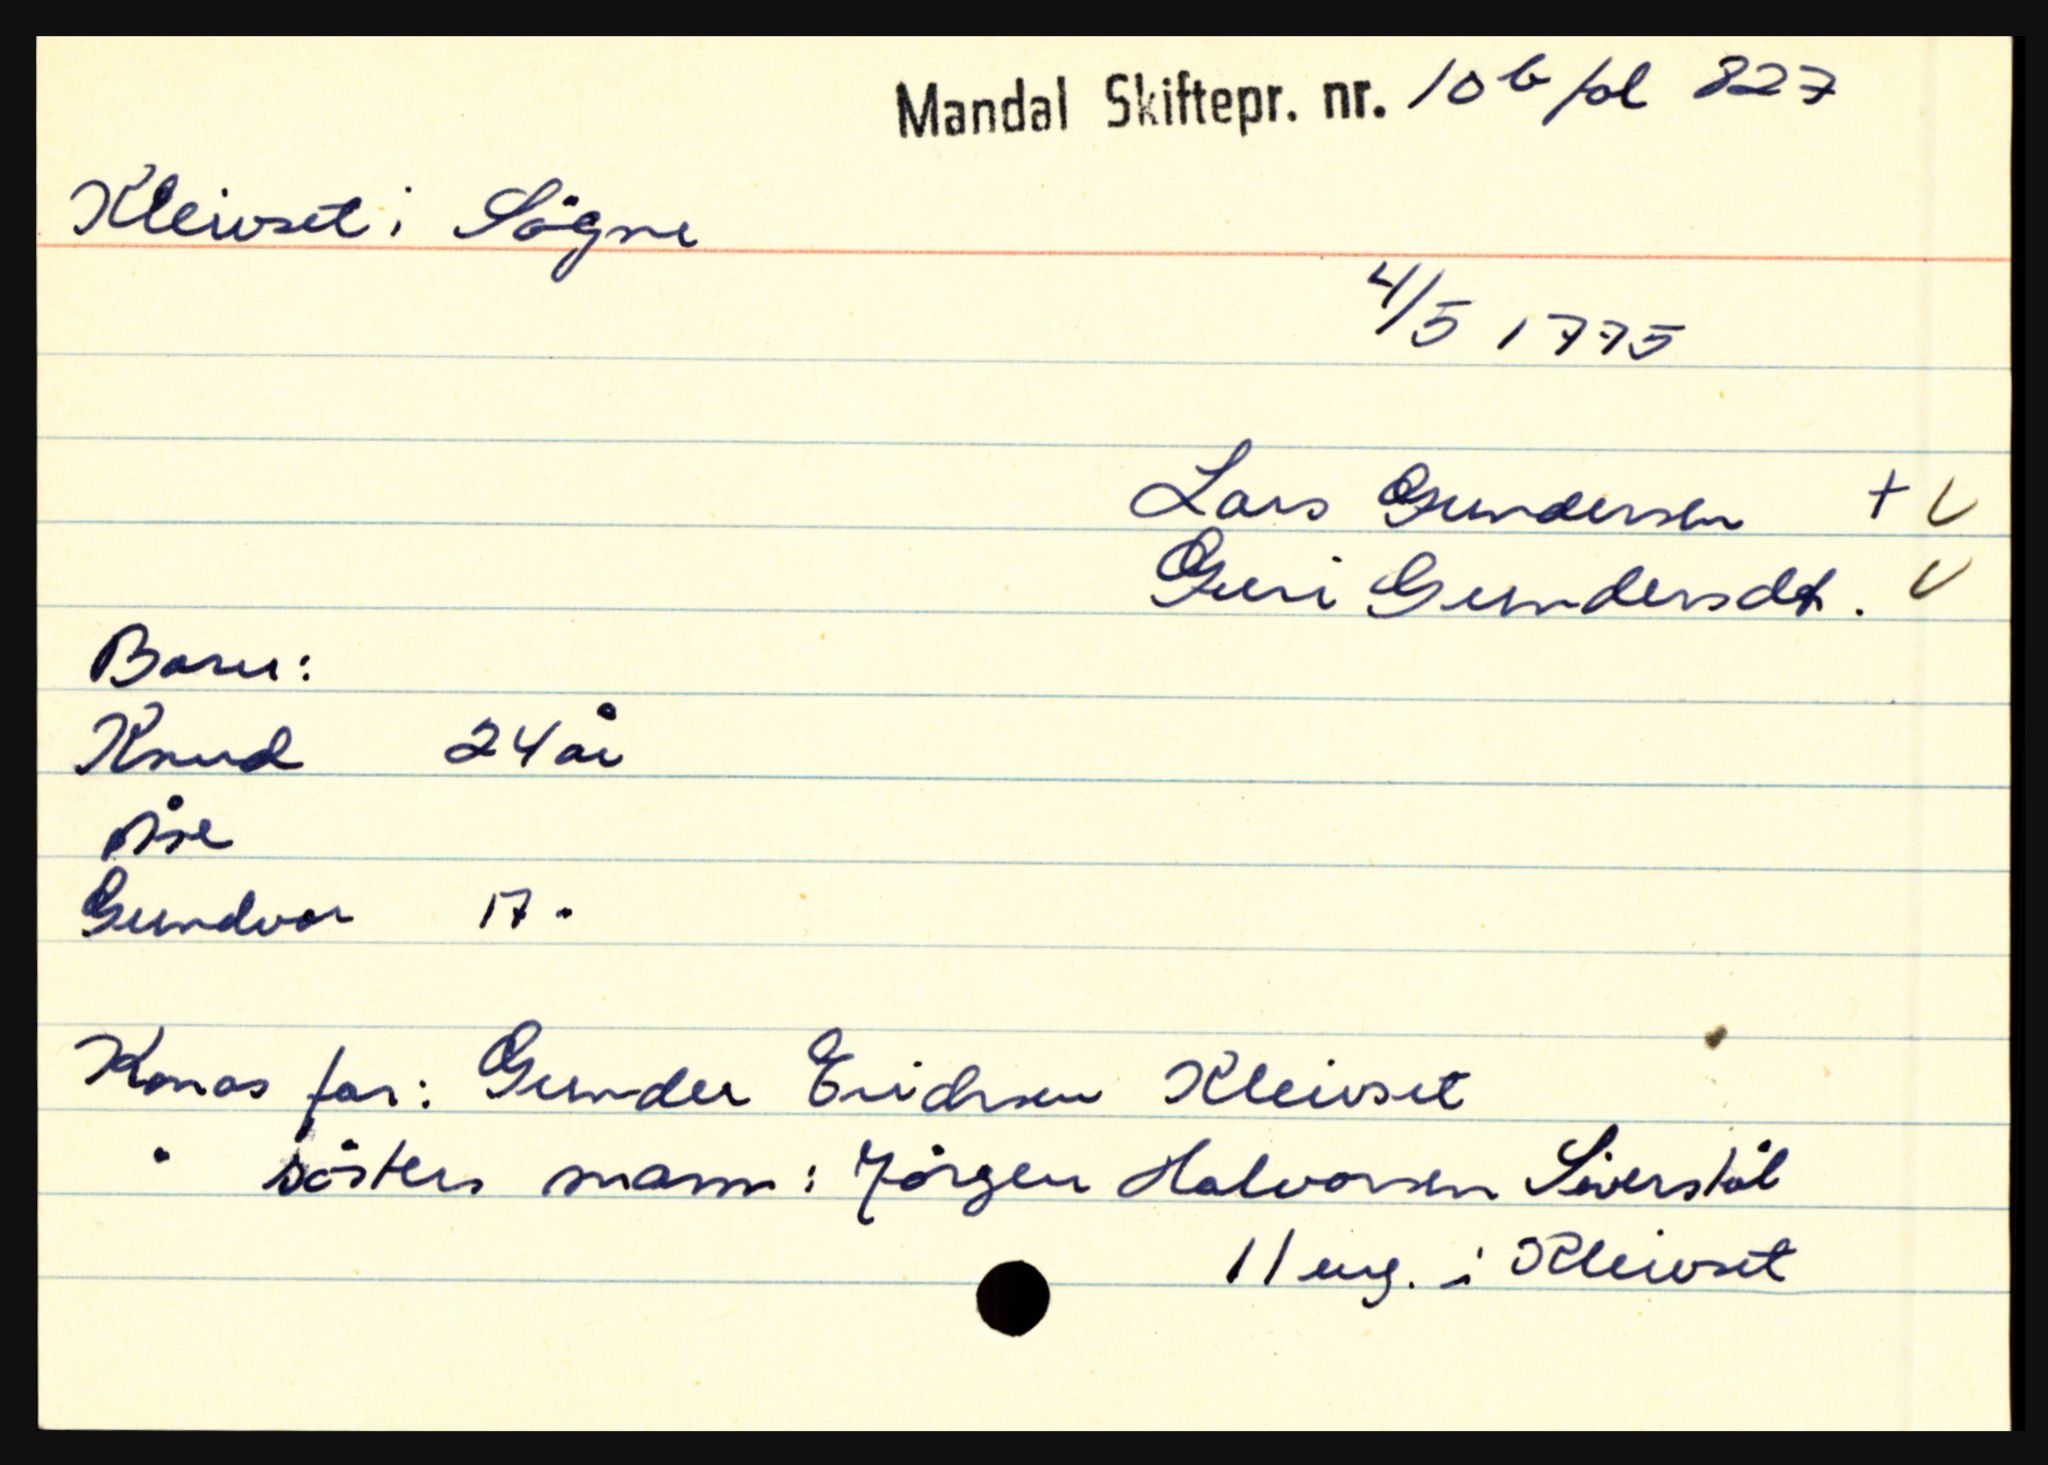 Mandal Skiftepr. nr. 10b fol 827
Kleivset i Sögne
4/5 1775
Lars Gundersen + V
Guri Gundersdt. V
Barn:
Knud 24 år
Åse
Gundvor 17 "
Konas far: Gunder Erichsen Kleivset
" sösters mann: Jörgen Halvorsen Siverstöl
11 eng. i Kleivset